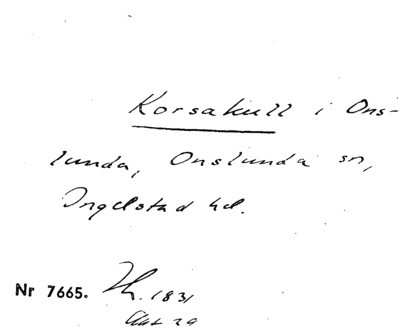 Korsakull i Ons-
lunda, Onslunda sn,
Ingelstad hd.
Nr 7665. Th. 1831
Akt 29